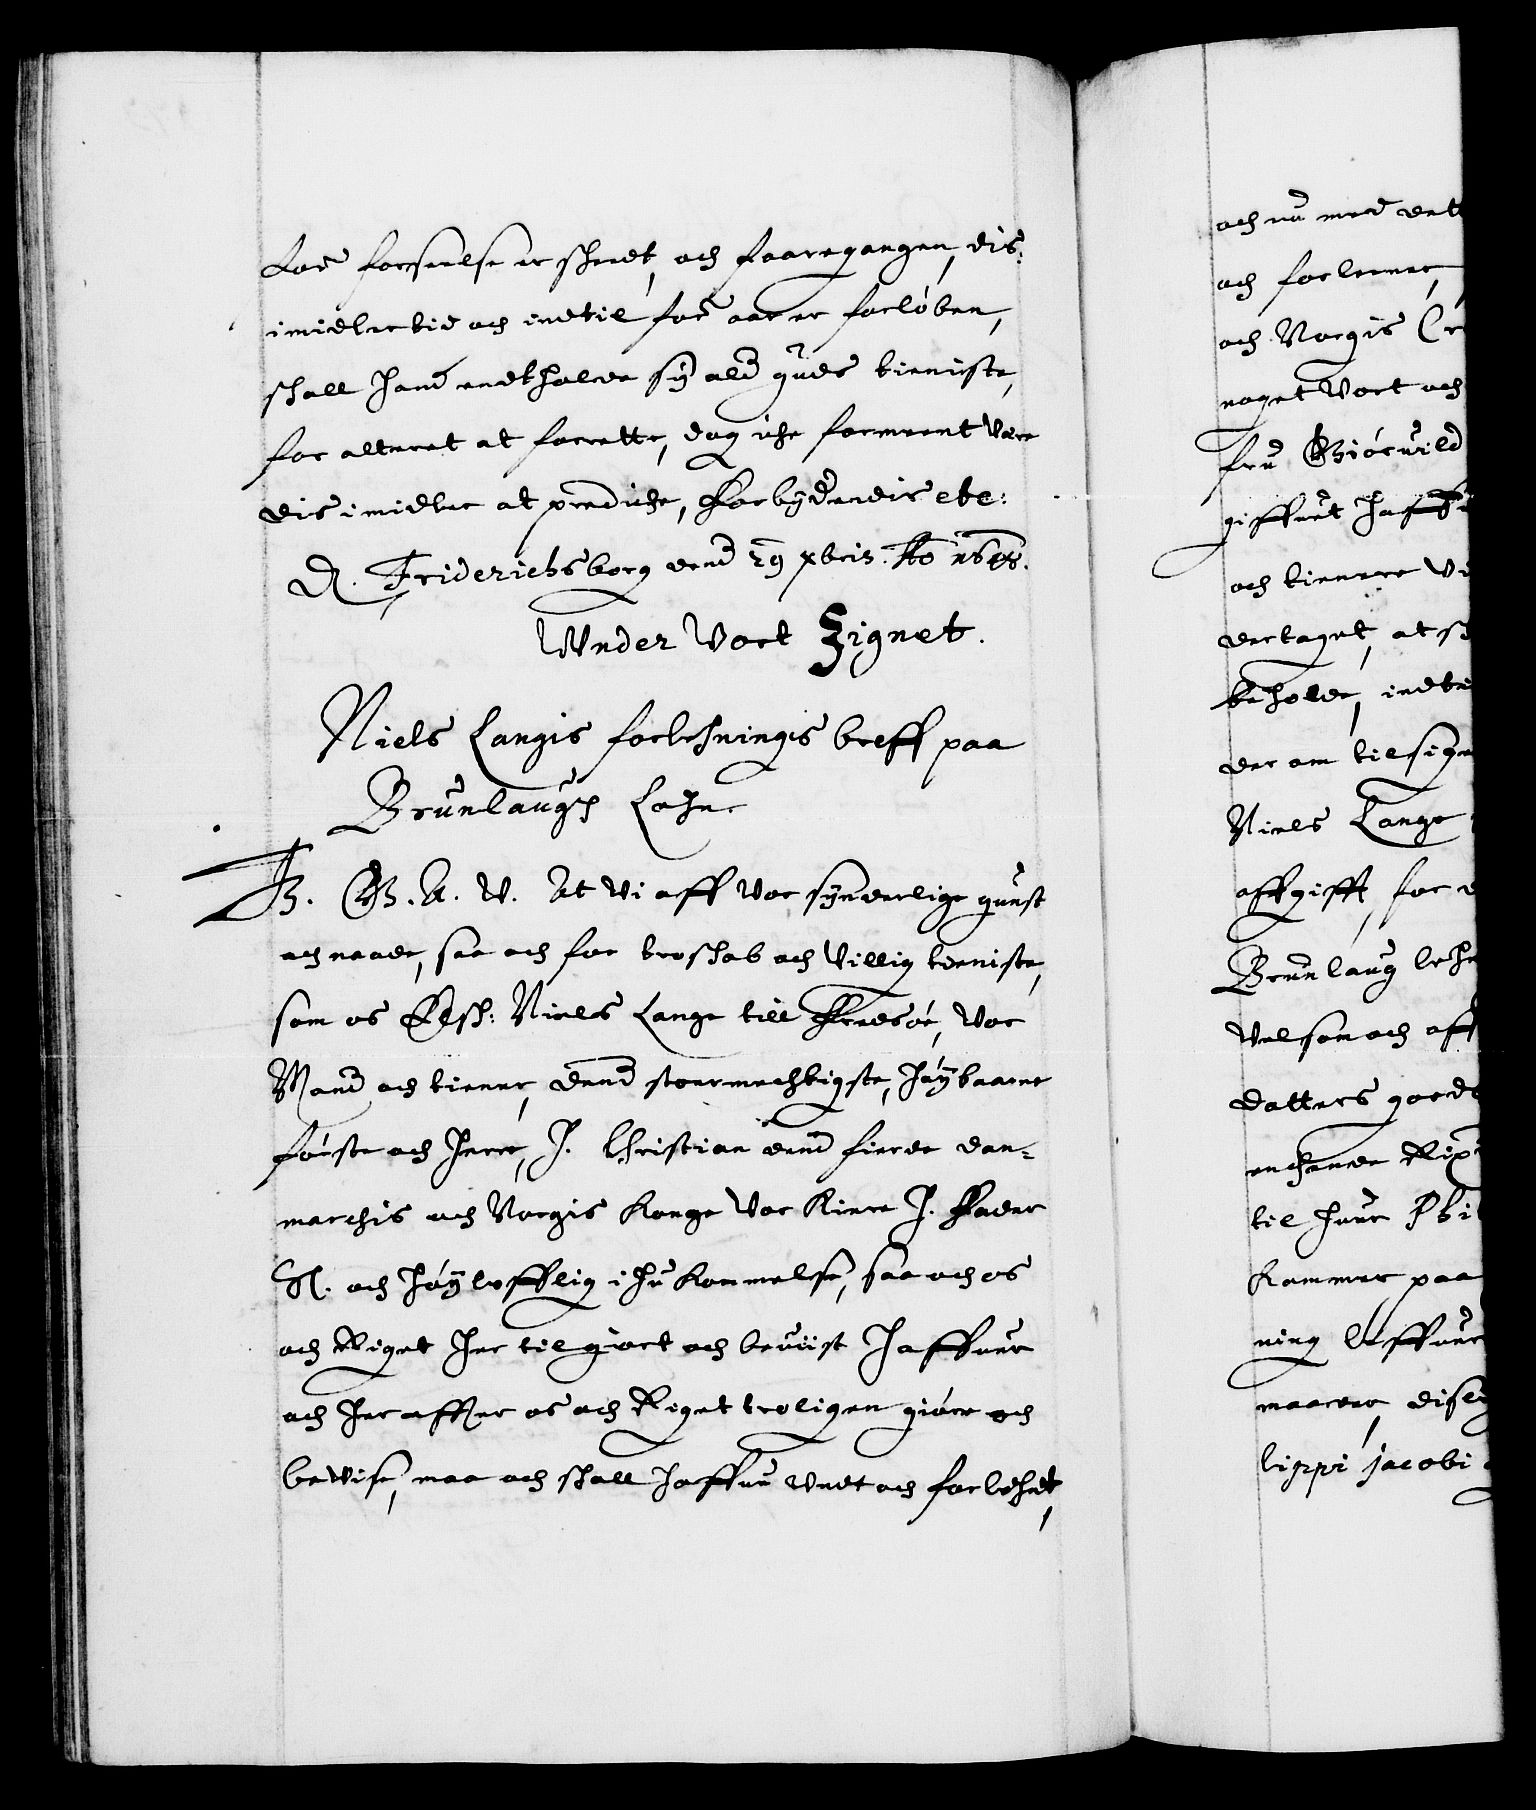 Loe forseelse er scheedt, och faaregangen, dis-
imidlertid och indtil for: aar er forløben,
shall hand endtholde sig ald guds tienniste,
for alteret at forrette, dog iche formeent Vere
dis imidler at prediche, Forbydendis etc:
D. Friderichsborg dend 29 xbris. Ao 1648.
Wnder Vort Zignet.
Niels Langis forlehningis breff paa
Brunlaugs Lehne
F3. G.A.V. At Vi aff vor synderlige gunst
och naade, saa och for troschab och Villig tienniste,
som os Elsch: Niels Lange till Fredsøe, Vor
Mand och tienner, dend stoermechtigste, høybaarne
første och Herre, H. Christian dend fierde dan-
marchis och Norgis Konge Vor Kiere H. Fader
S. och høylofflig ihu Kommelse, saa och os
och Riget her til giort och beviist haffuer
och her effter os och Riget troligen giøre och
bevise, maa och shall haffue undt och forlehnt,
och nu med dett
och forlenner,
och Norgis Cr
noget Vort och
fru
giffuet haff
och tiennere Vi
dertaget, at s
beholde, indti
der om tilsig
Niels Lange
affgifft, for d
Brunlaug lehn
Velsom och aff
datters goeds
enchande Rix
til huer Phi
Kammer paa
ning leffuer
maader, disl
lippi jacobi